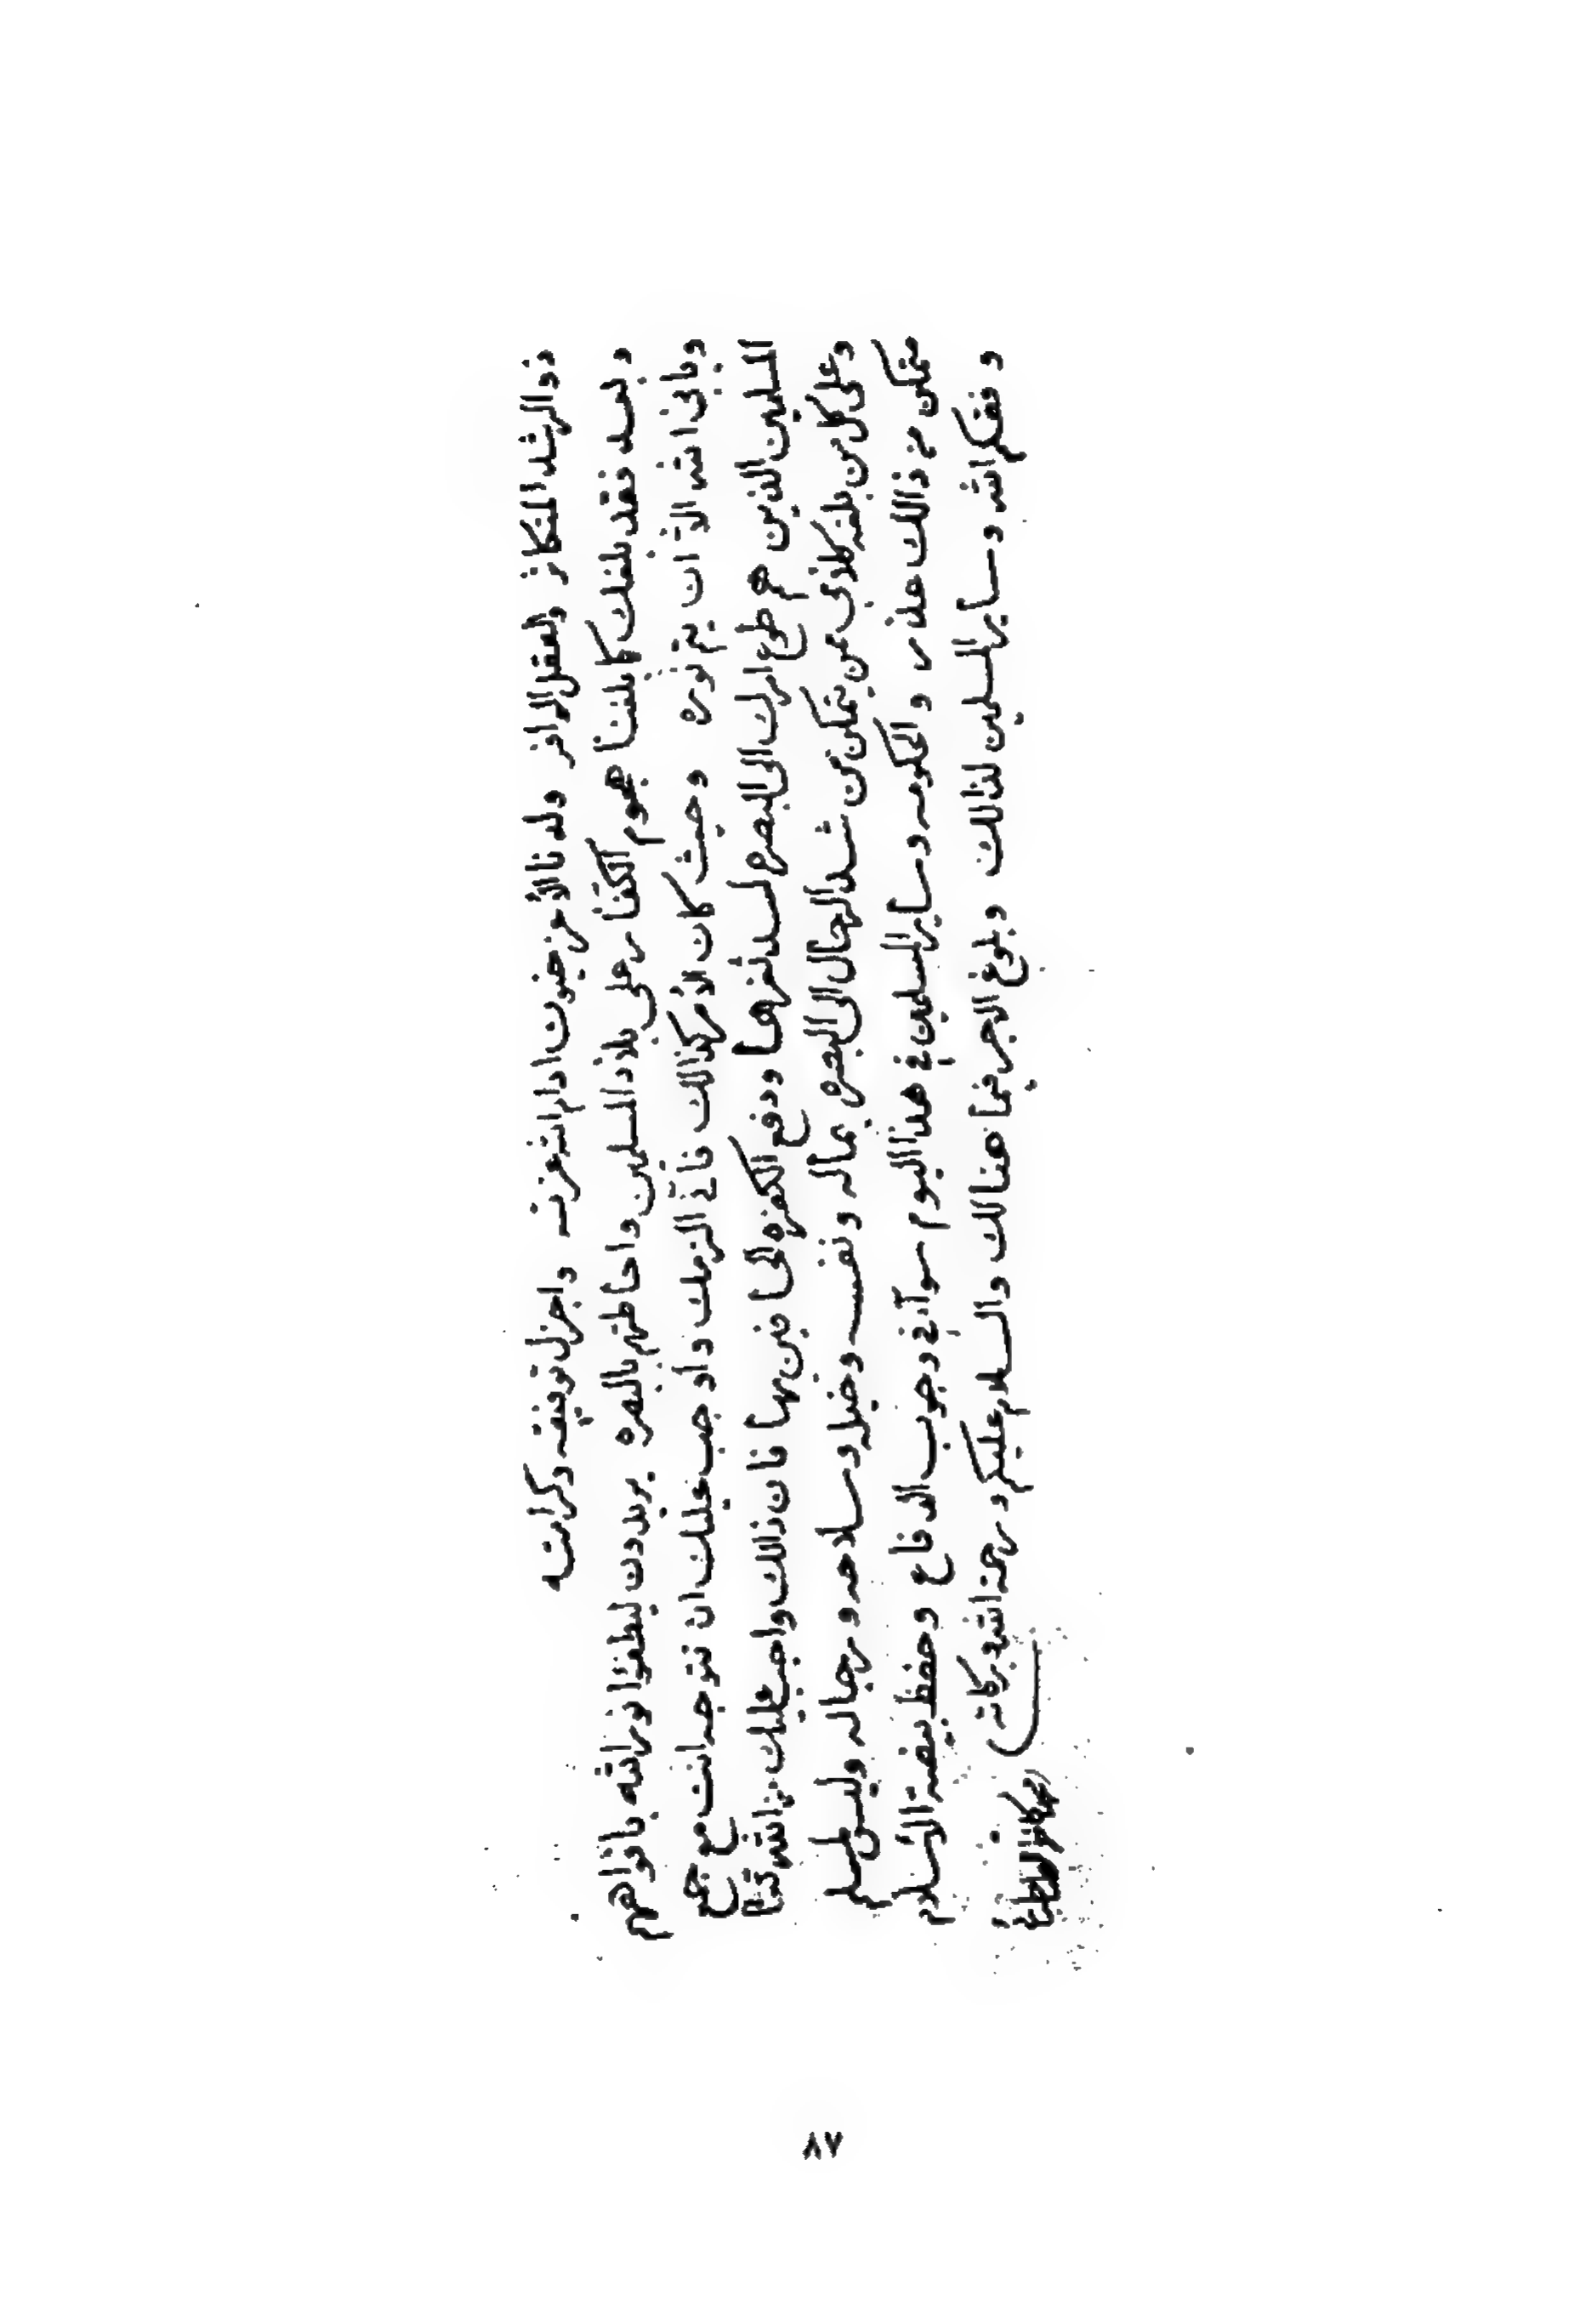 ذو الرشد المتكاثر والعقل الوافر ولدنا الأعز خيون ادام الله عزته واجزل توفيقه وكرامته
وبعد فقد بلغك كما بلغنا هجوم الكفار على بلاد المسلمين واحاطتهم بالبصره يريدون ليطفئوا نور الله بافواههم
ويابى الله الا ان يتم نوره وحيث كان الأمر كذالك فأنه الزمك واوجب عليك ان تتوجه انت مع جميع
المسلمين الذين هم طوع ارادتك الى البصره لسد ثغرها ودفع الكفره الى من بها فان ذالك واجب عليك بل اشد
وعلى كل من بلغه كلامي من متمكن شد الرحال الى البصره بماله ونفسه وخيله وسلاحه ورجاله وليس لمسلم
متمكن في ذالك عذر والحكومه وساير المسلمين في هذا اليوم سواء في وجوب الدفاع وحفظ بيضة الاسلام
وفقكم الله وساير المسلمين لذالك وبلوغ الاجر فيما هنالك والسلام عليكم ورحمة الله وبركاته
محمد كاظم الطباطبائي
٨٧